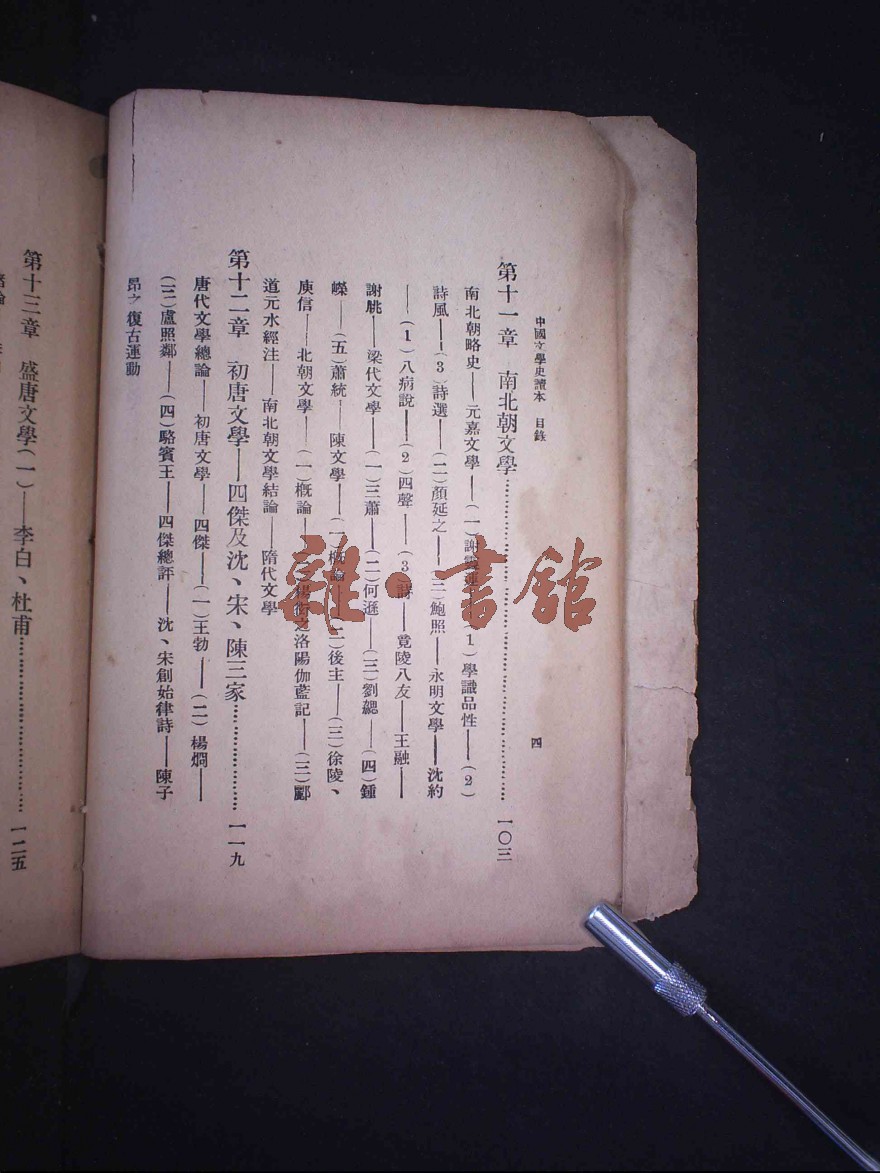 中國文學史讀本　目錄
四
第十一章　南北朝文學……………………一〇三
南北朝略史——元嘉文學——(一)謝靈運——(1)學識品性——(2)
詩風——(3)詩選——(二)顏延之——(三)鮑照——永明文學——沈約
——(1)八病說——(2)四聲——(3)詩——竟陵八友——王融——
謝朓——梁代文學——(一)三蕭——(二)何遜——(三)劉勰——(四)鍾
嶸——(五)蕭統——陳文學——(一)概論——(二)後主——(三)徐陵、
庾信——北朝文學——(一)概論——(二)楊衒之洛陽伽藍記——(三)酈
道元水經注——南北朝文學結論——隋代文學
第十二章　初唐文學——四傑及沈、宋、陳三家……………一一九
唐代文學總論——初唐文學——四傑——(一)王勃——(二)楊烱——
(三)盧照鄰——(四)駱賓王——四傑總評——沈、宋創始律詩——陳子
昂之復古運動
第十三章　盛唐文學(一)——李白、杜甫……………一二五
雜·書館